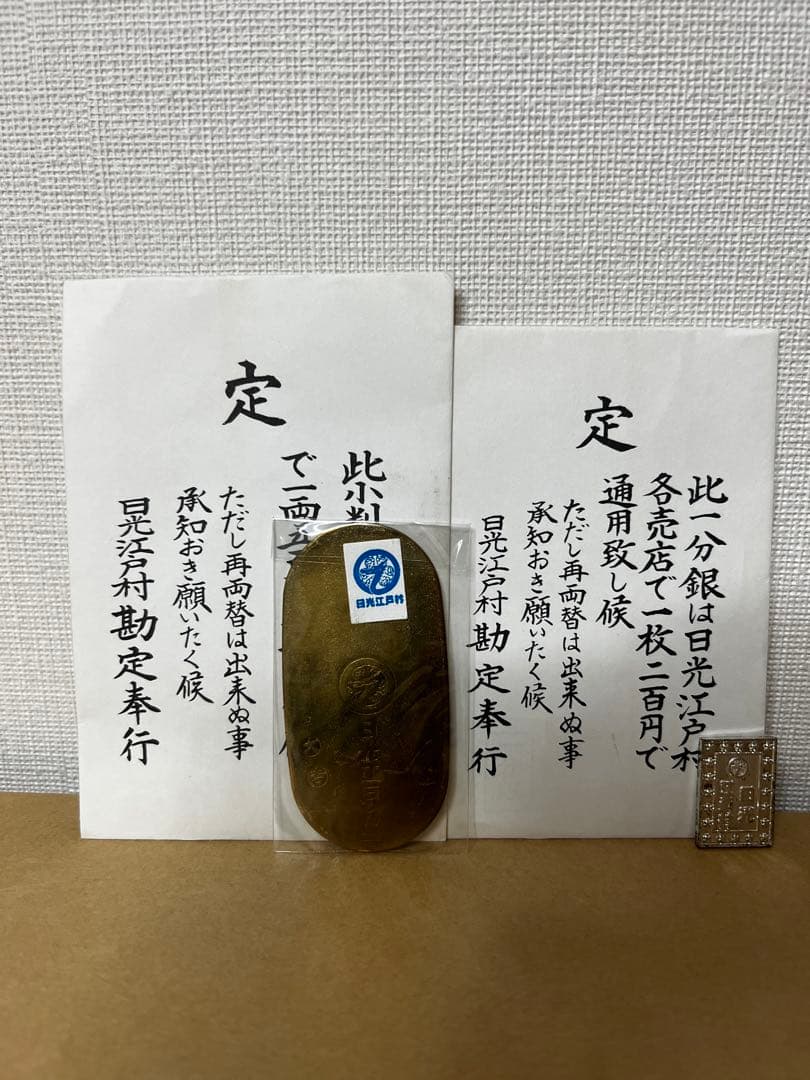 定
此小判
で一両
ただし再両替は出来ぬ事
承知おき願いたく候
日光江戸村 勘定奉行
日光江戸村
定
此一分銀は日光江戸村
各売店で一枚二百円で
通用致し候
ただし再両替は出来ぬ事
承知おき願いたく候
日光江戸村 勘定奉行